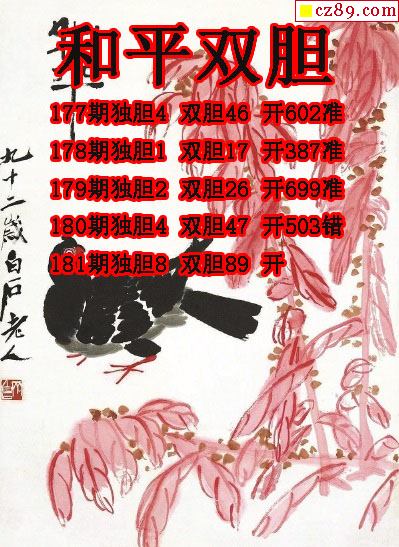 cz89.com
和平双胆
177期独胆4 双胆46 开602准
178期独胆1 双胆17 开387准
179期独胆2 双胆26 开699准
180期独胆4 双胆47 开503错
181期独胆8 双胆89 开
九十二岁白石老人